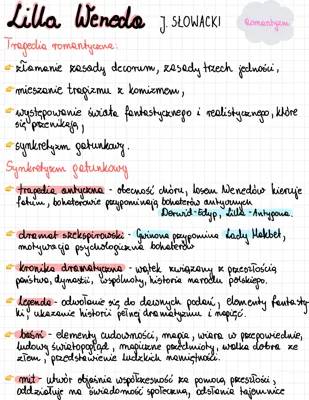 Lilla Weneda J. SŁOWACKI
Romantyzm
Tragedia romantyczna:
złamanie zasady decorum, zasady trzech jedności,
mieszanie tragizmu z komizmem,
występowanie świata fantastycznego i realistycznego, które
się przenikają,
synkretyzm gatunkowy.
Synkretyzm gatunkowy
tragedia antyczna - obecność chóru, losem Wenedów kieruje
fatum, bohaterowie przypominają bohaterów antycznych
Derwid-Edyp, Lilla-Antygona.
dramat szekspirowski - Gwinona przypomina Lady Makbet,
motywacja psychologiczna bohaterów
kronika dramatyczna - wątek związany z przeszłością
państwa, dynastii, wspólnoty, historia narodu polskiego.
legenda - odwołanie się do dawnych podań, elementy fantasty-
ki, ukazanie historii pełnej dramatyzmu i napięć.
baśń - elementy cudowności, magia, wiara w przepowiednie,
ludowy światopogląd, magiczne przedmioty, walka dobra ze
złem, przedstawienie ludzkich namiętności.
mit - utwór objaśnia współczesność za pomocą przeszłości,
oddziałuje na świadomość społeczną, odsłania tajemnice